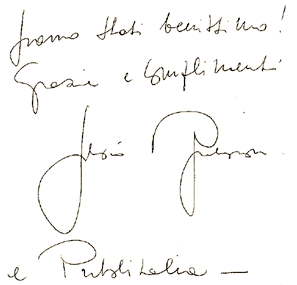 siamo stati benissimo!
Grazie e complimenti
e Publitalia —